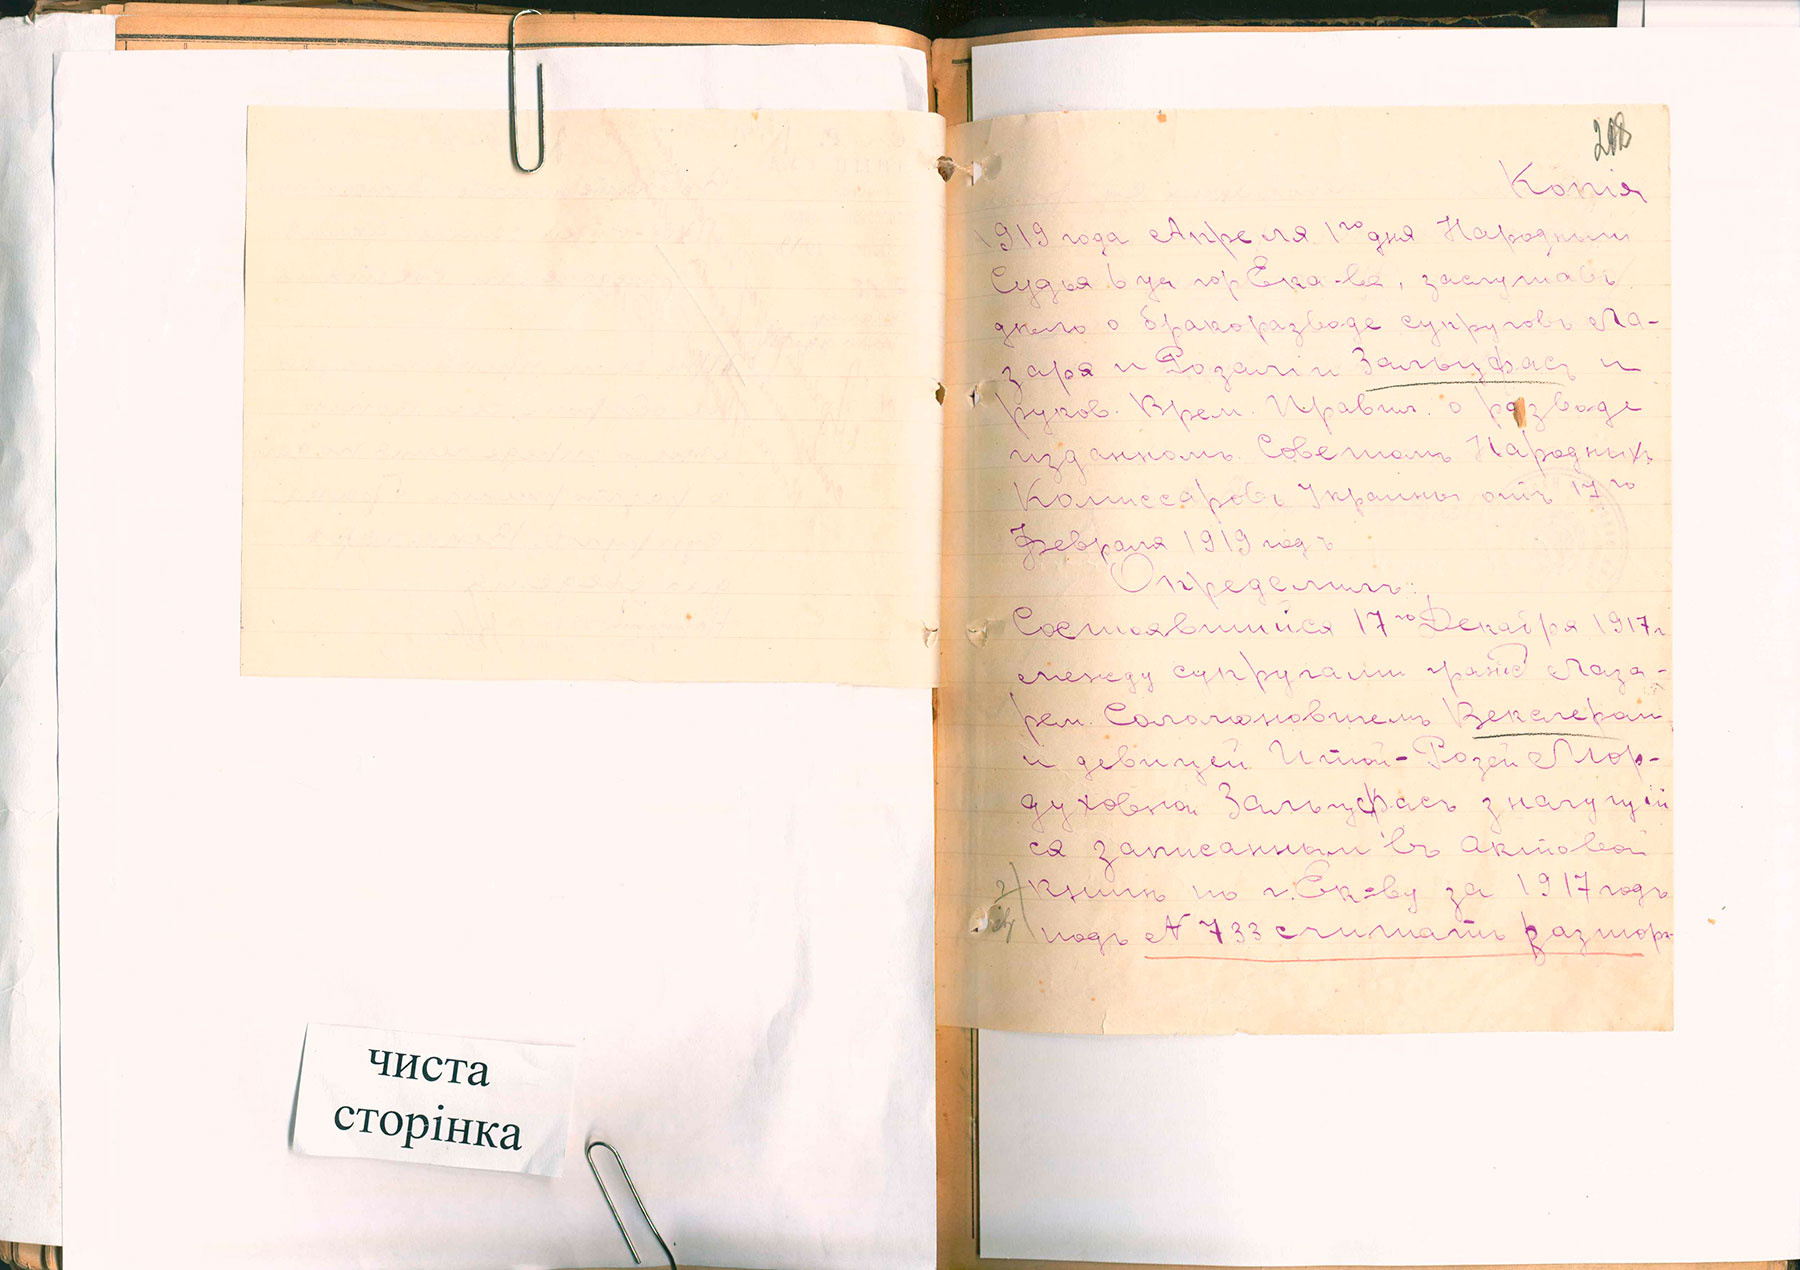 чиста
сторінка
Копія
1919 года Апреля 1го дня Народный
Судья 6 уч гор Ека-ва, заслушавъ
дѣло о бракоразводе супруговъ Ла-
заря и Розаліи Зальцфасъ и
руков. Врем. Правил. о разводе
изданномъ Советомъ Народныхъ
Комиссаровъ Украины отъ 17го
Февраля 1919 годъ
Определилъ:
Состоявшийся 17го Декабря 1917 г
между супругами гражд Лаза-
рем Соломоновичемъ Векслером
и девицей Итой-Розей Мор-
духовной Зальцфасъ значущій
ся записанным въ актовой
книгѣ по г. Ек=ву за 1917 годъ
подъ № 733 считать расторг-